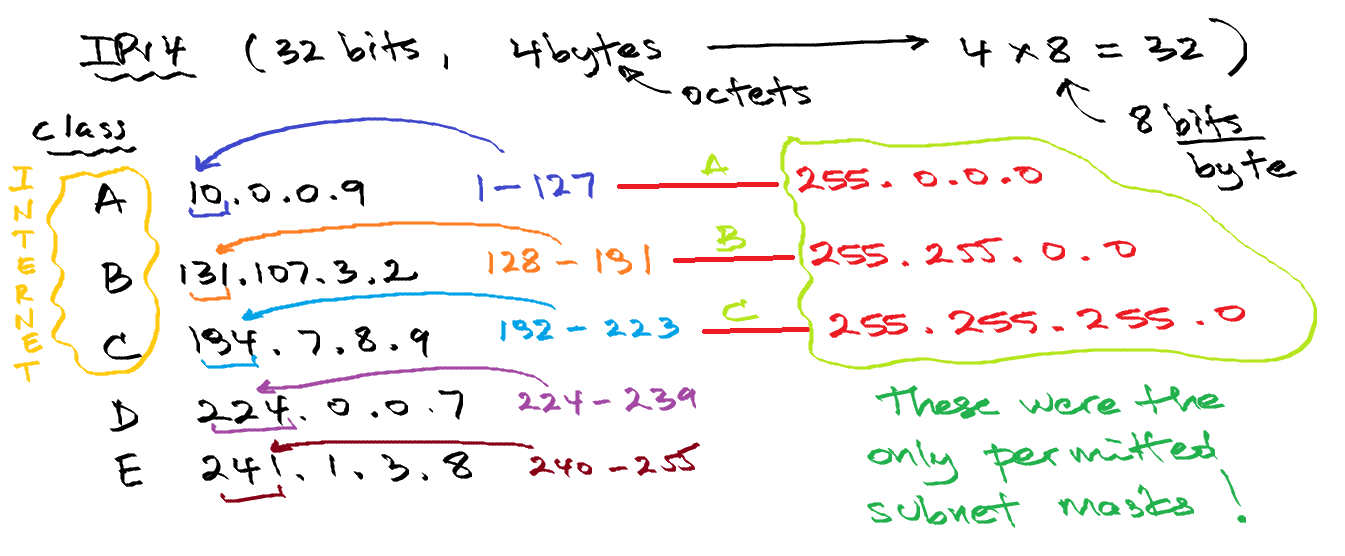 IPv4 (32 bits, 4 bytes → 4 × 8 = 32)
octets
8 bits/byte
class
INTERNET
A 10.0.0.9 1 – 127 A 255.0.0.0
B 131.107.3.2 128 – 191 B 255.255.0.0
C 194.7.8.9 192 – 223 C 255.255.255.0
D 224.0.0.7 224 – 239
E 241.1.3.8 240 – 255
These were the
only permitted
subnet masks!